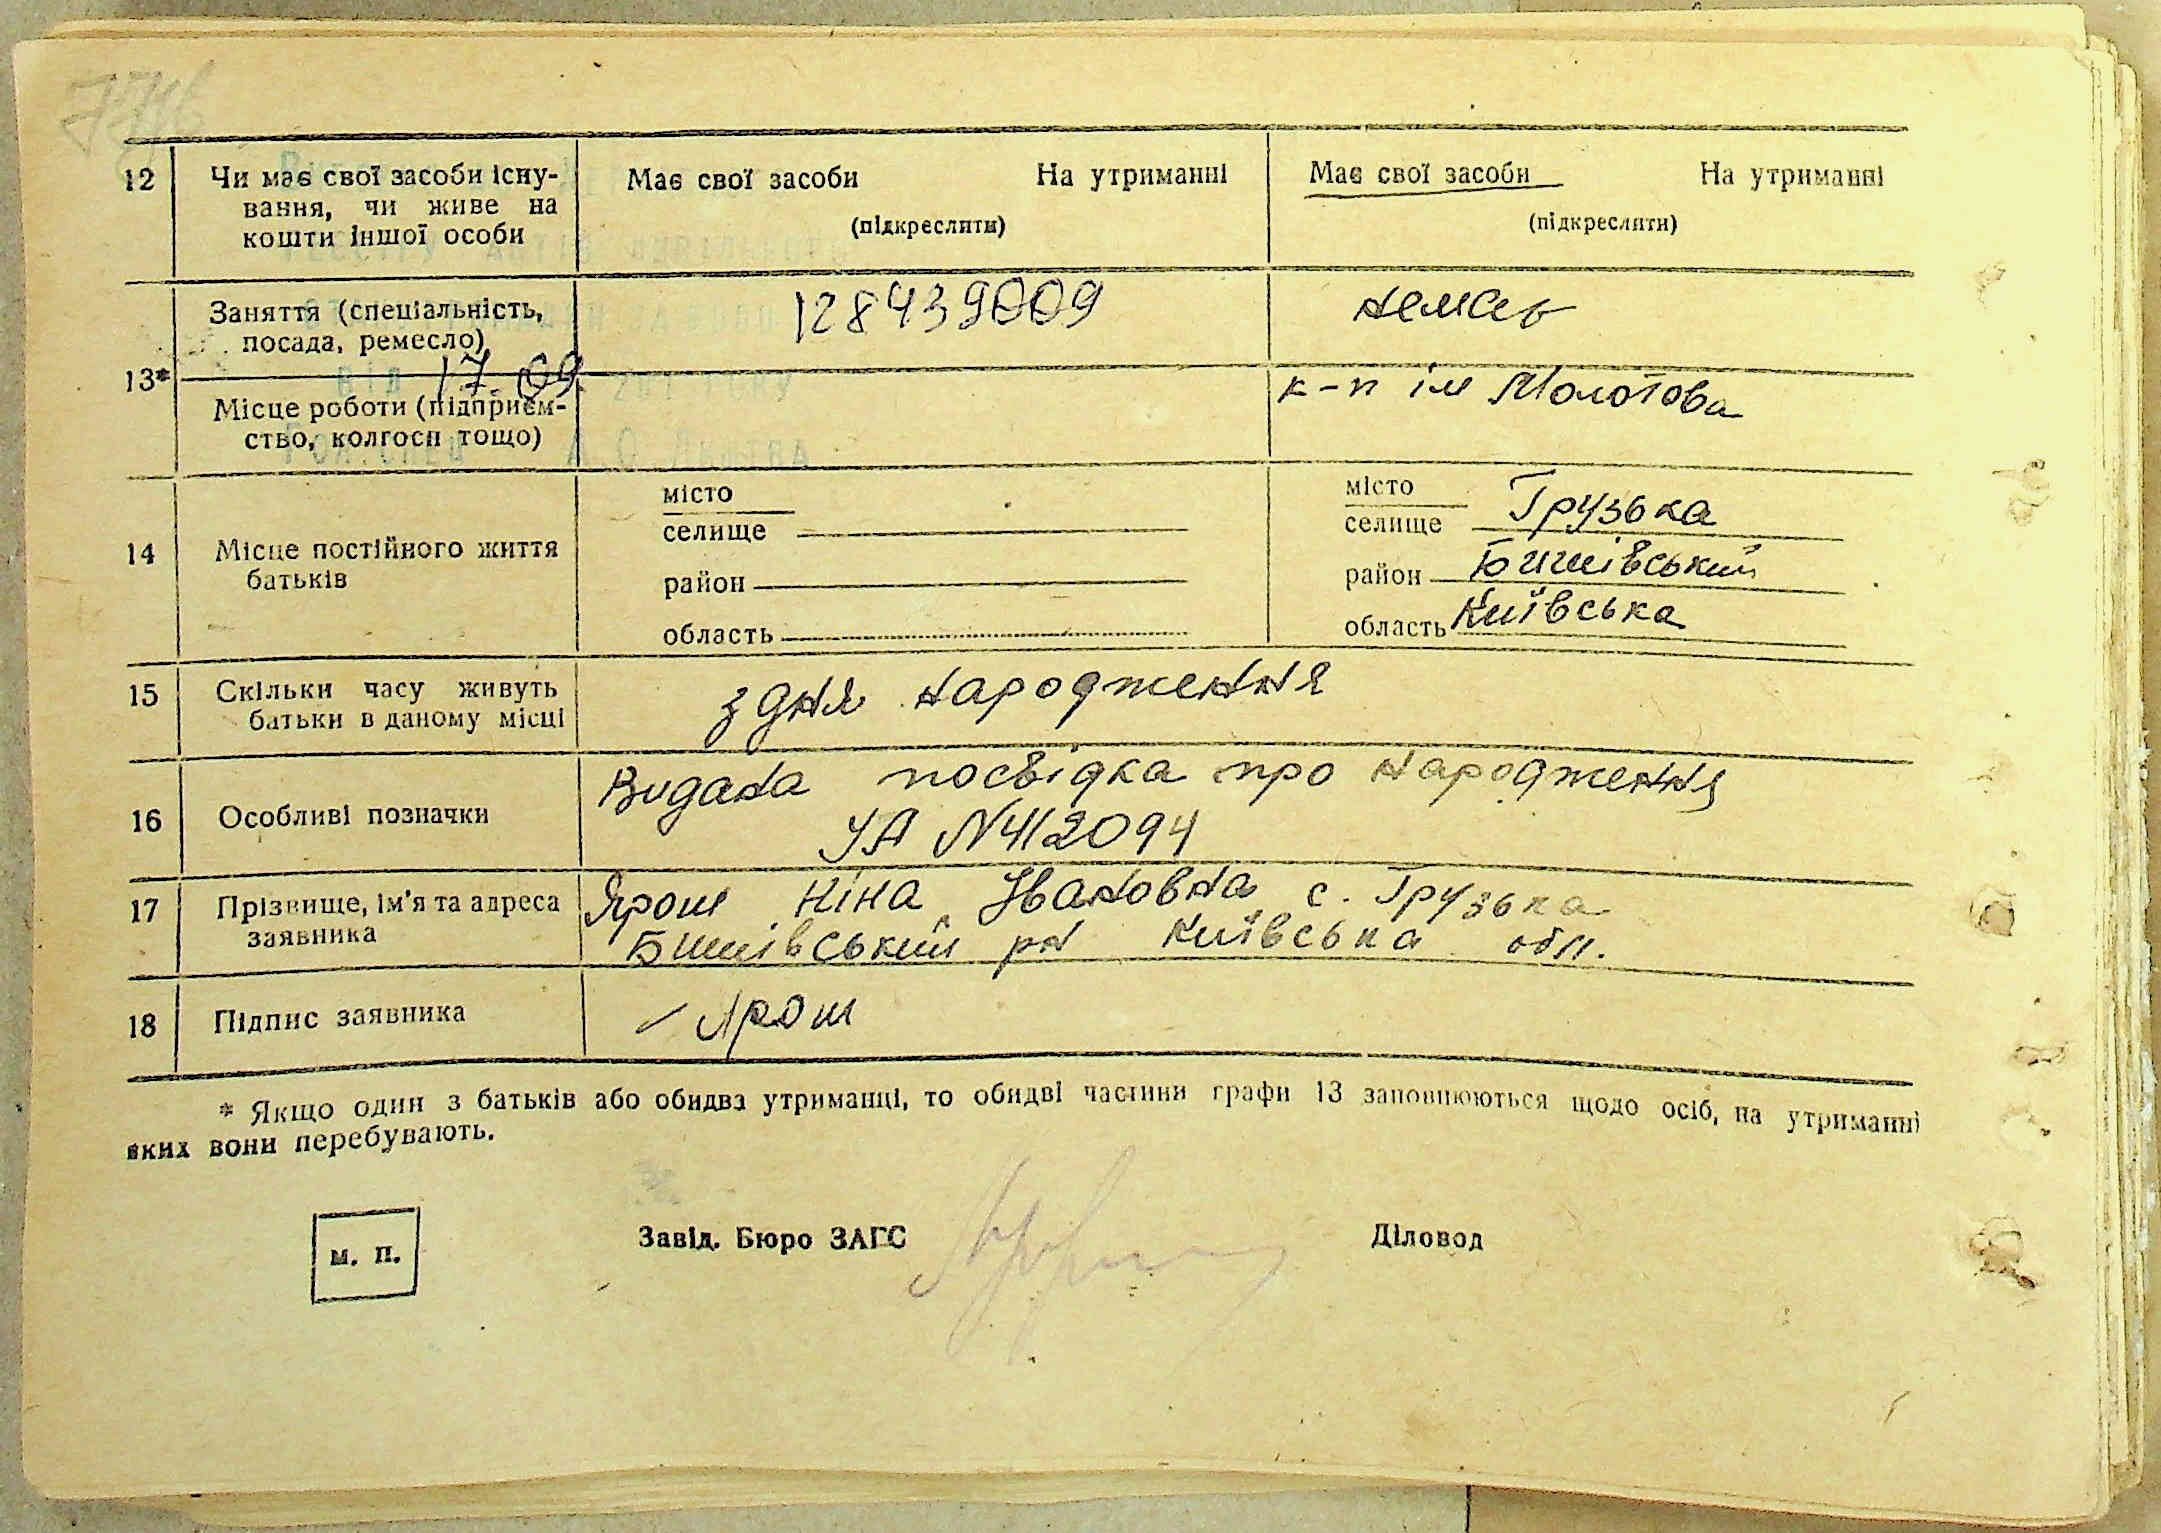 12 Чи має свої засоби існу-
вання, чи живе на
кошти іншої особи
Має свої засоби На утриманні
(підкреслити)
Має свої засоби На утриманні
(підкреслити)
13*
Заняття (спеціальність,
посада, ремесло)
128439009
17.09
Місце роботи (підприєм-
ство, колгосп тощо)
к-п ім Молотова
14 Місце постійного життя
батьків
місто
селище
район
область
місто
селище Грузька
район Бишівський
область Київська
15 Скільки часу живуть
батьки в даному місці
з дня народження
16 Особливі позначки
Видана посвідка про народження
УА N412094
17 Прізвище, ім'я та адреса
заявника
Ярош Ніна Івановна с. Грузька
Бишівський рн Київська обл.
18 Підпис заявника
Ярош
* Якщо один з батьків або обидва утриманці, то обидві частини графи 13 заповнюються щодо осіб, на утриманні
яких вони перебувають.
м. п.
Завід. Бюро ЗАГС
Діловод